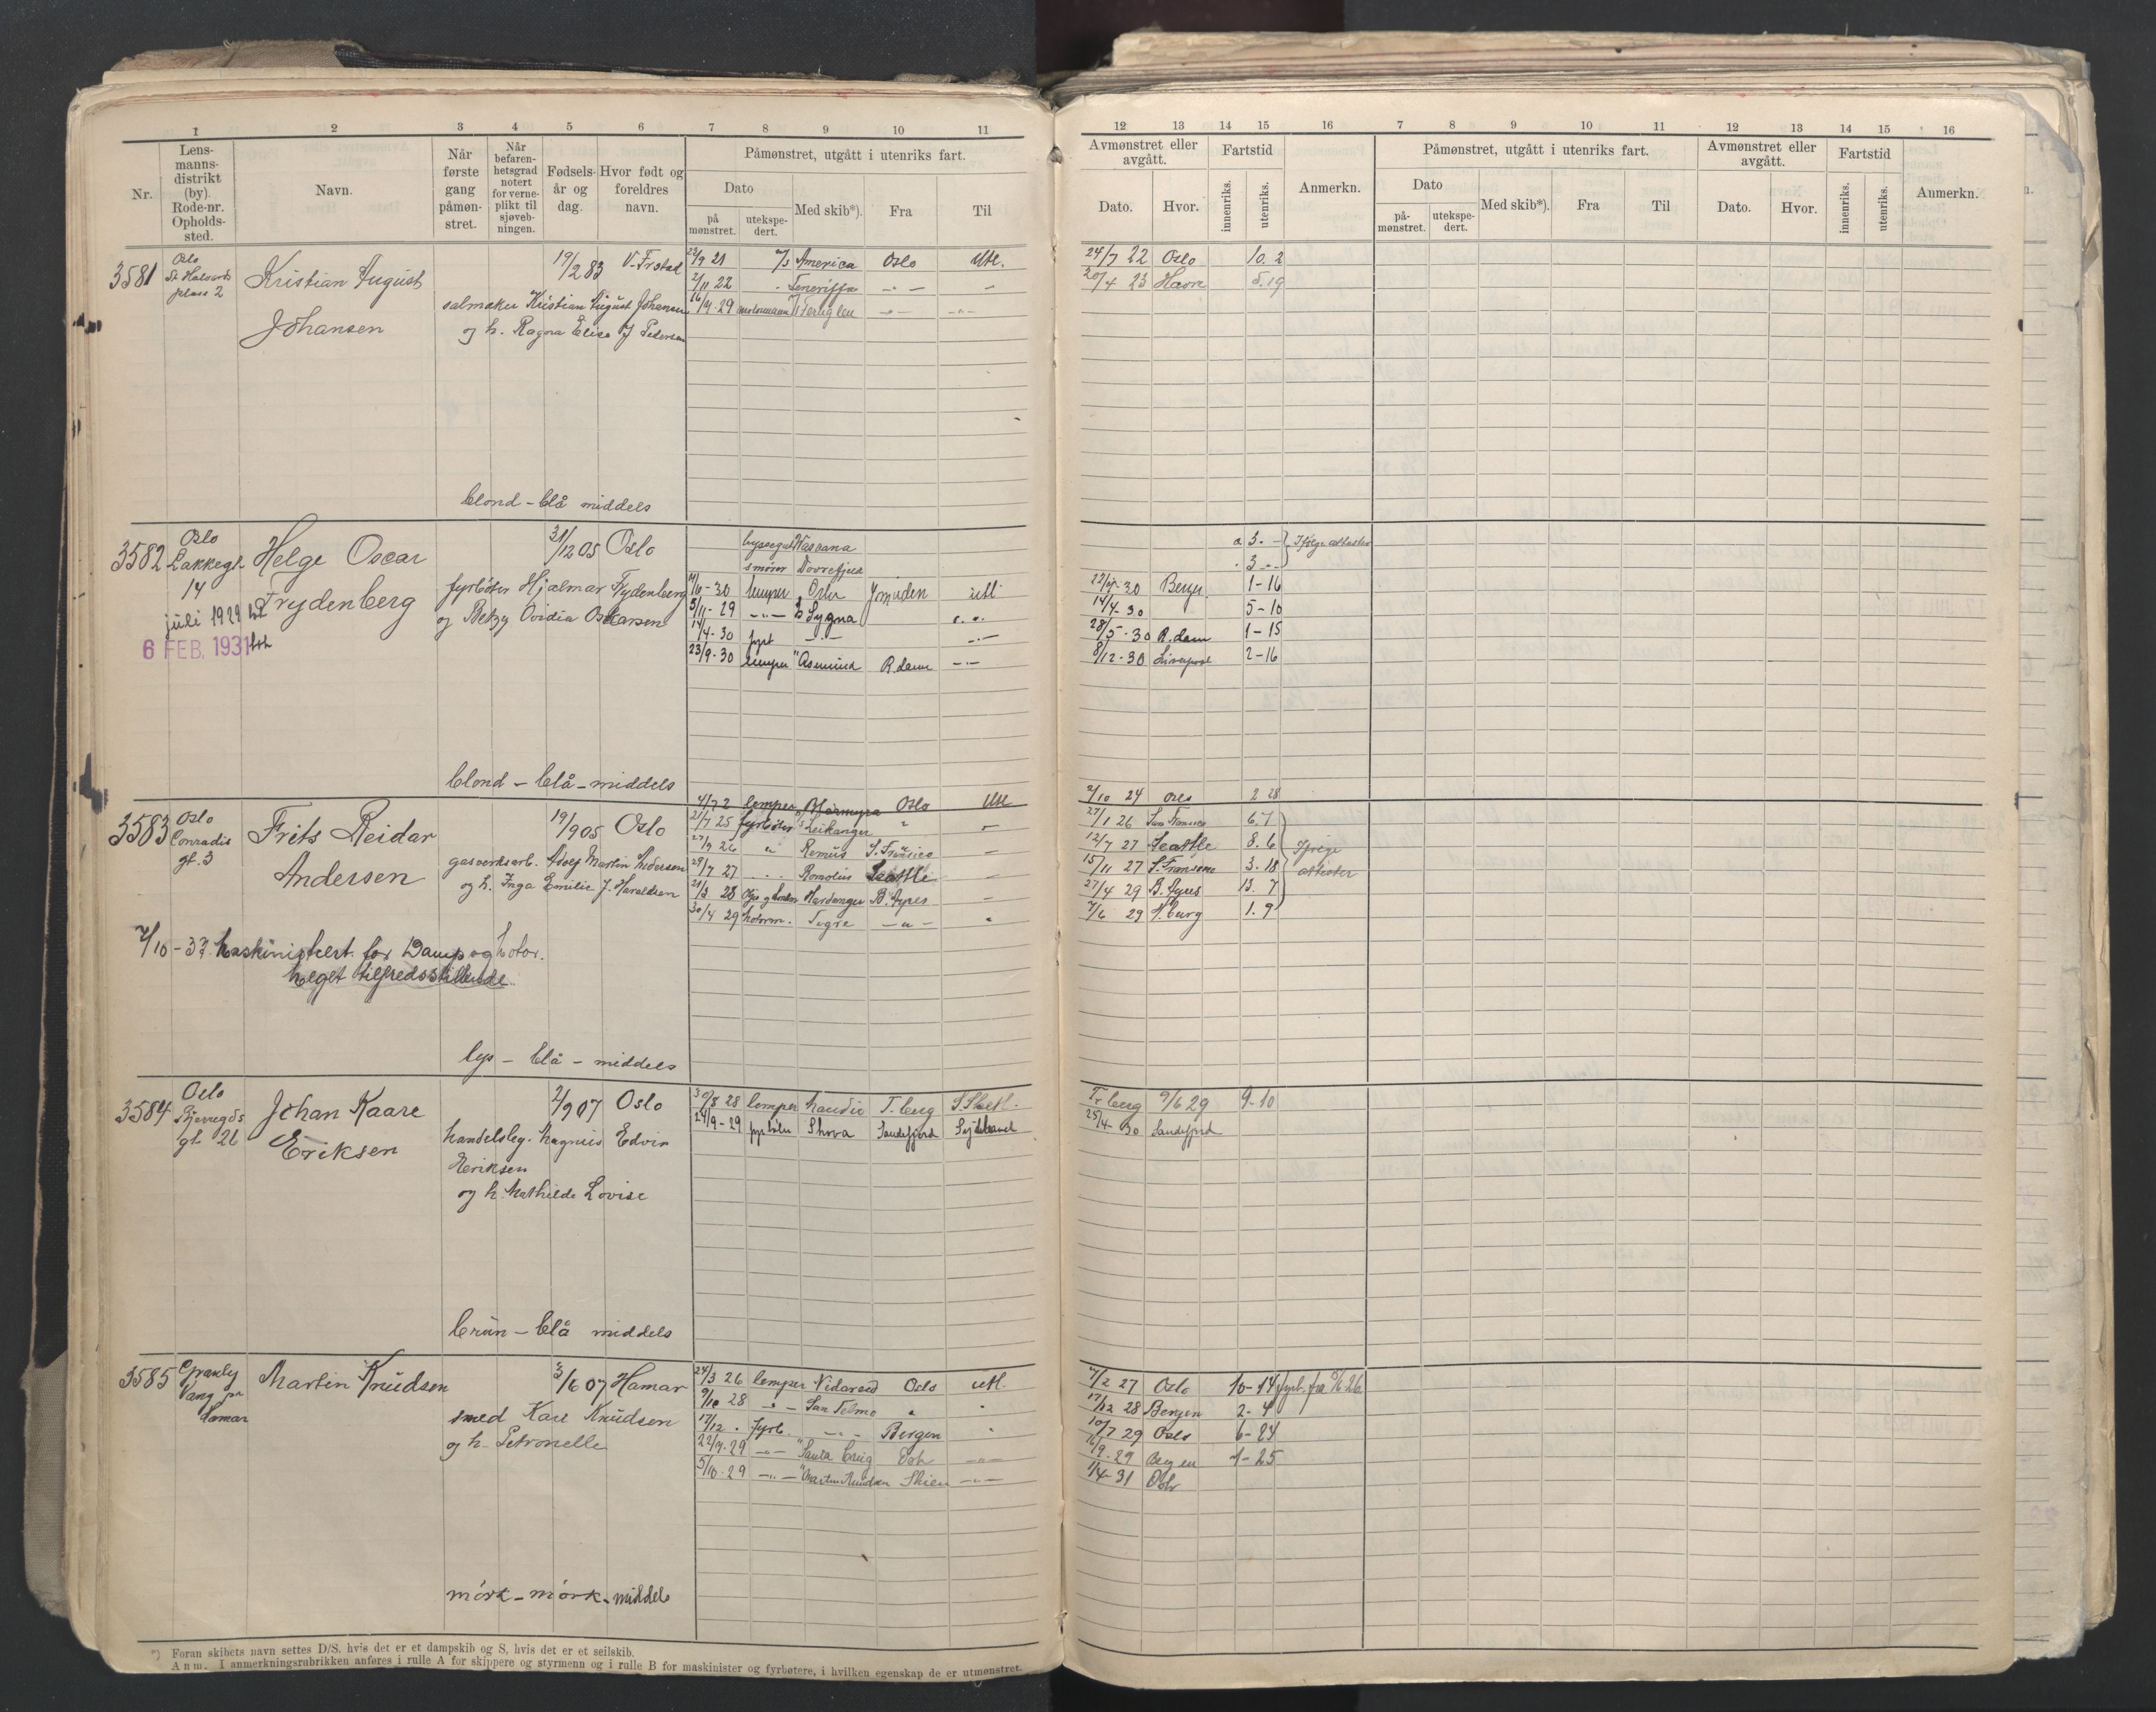 1 2 3 4 5 6 7 8 9 10 11
Nr.
Lens-
manns-
distrikt
(by).
Rode-nr.
Opholds-
sted.
Navn.
Når
første
gang
påmøn-
stret.
Når
befaren-
hetsgrad
notert
for verne-
plikt til
sjøveb-
ningen.
Fødsels-
år og
dag.
Hvor født og
foreldres
navn.
Påmønstret, utgått i utenriks fart.
Dato
på
mønstret.
utekspe-
dert.
Med skib*).
Fra
Til
12 13 14 15 16 7 8 9 10 11 12 13 14 15 16
Avmønstret eller
avgått.
Dato.
Hvor.
Fartstid
innenriks.
utenriks.
Anmerkn.
Påmønstret, utgått i utenriks fart.
Dato
på-
mønstret.
utekspe-
dert.
Med skib*).
Fra
Til
Avmønstret eller
avgått.
Dato.
Hvor.
Fartstid
innenriks.
utenriks.
Anmerkn.
3581
Oslo
St. Halvards
plass 2
Kristian August
Johansen
19/2 83 V. Frstad
salmaker Kristian August Johansen
og h. Ragna Elise J Pedersen
23/9 21 America Oslo Utl.
24/7 22 Oslo 10. 2
2/11 22 Teneriffa
20/4 23 Havre 5. 19
16/9. 29 motormann Fernglen
blond - blå middels
3582
Oslo
Lakkegt.
14
Helge Oscar
Frydenberg
juli 1929
6 FEB. 1931
31/12 05 Oslo
fyrbøter Hjalmar Frydenberg
og Betzy Ovidia Oskarsen
smører Dovrefjeld
3. - Ifølge attester
3 - -
-30 lemper Oslo Ymuiden utl
-30 Berg. 1-16
5/11-29 Sygna
14/4-30 5-10
14/4-30 fyrb
28/5-30 R.dam 1-15
23/9-30 lemper Asmund R.dam
8/12-30 Liverpool 2-16
blond - blå - middels
3583
Oslo
Conradis
gt. 3
Frits Reidar
Andersen
19/9 05 Oslo
gasverksarb. Adolf Martin Andersen
og h. Inga Emilie J. Haraldsen
4/7 2 lemper Bjørmyra Oslo Utl
2/10 24 Oslo 2 28
21/7 25 fyrbøter Leikanger
27/1 26 San Fransisco 6. 7
27/9 26 Remus S. Francisco
12/7 27 Seattle 8. 6
29/7 27 Romolus Seattle
15/11 27 S. Fransisco 3. 18
21/3 28 Hardanger B. Ayres
27/4 29 B. Ayres 13. 7
30/4 29 motorm. Tigre
7/6 29 H.burg 1. 9
Ifølge
attester
2/10 - 37. Maskinistcert. for Damp og Motor.
Meget tilfredsstillende
lys - blå - middels
3584
Oslo
Bjerregds
gt. 26
Johan Kaare
Eriksen
2/9 07 Oslo
handelsbeg. Magnus Edvin
Eriksen
og h. Mathilde Lovise
30/8 28 lemper Maudie T.berg S. Shetl.
Tr.berg 9/6 29 9-10
24/9-29 fyrbøter Skova Sandefjord Sydishavet
25/4-30 Sandefjord
brun - blå middels
3585
Granly
Vang pr
Hamar
Martin Knudsen
3/6 07 Hamar
smed Kare Knudsen
og h. Petronelle
24/3 26 lemper Vidareid Oslo utl.
4/2 27 Oslo 10-14 fyrb. fra 9/6 26
9/10 28 San Telmo
17/12 28 Bergen 2- 4
17/12 . fyrb. Bergen
10/7 29 Oslo 6-24
22/9-29 Santa Cruz Oslo
16/9. 29 Bergen 1-25
5/10-29 Martin Knudsen Skien
1/4-31 Oslo
mörk - mörk - middels
*) Foran skibets navn settes D/S. hvis det er et dampskib og S, hvis det er et seilskib.
Anm. I anmerkningsrubrikken anføres i rulle A for skippere og styrmenn og i rulle B for maskinister og fyrbøtere, i hvilken egenskap de er utmønstret.